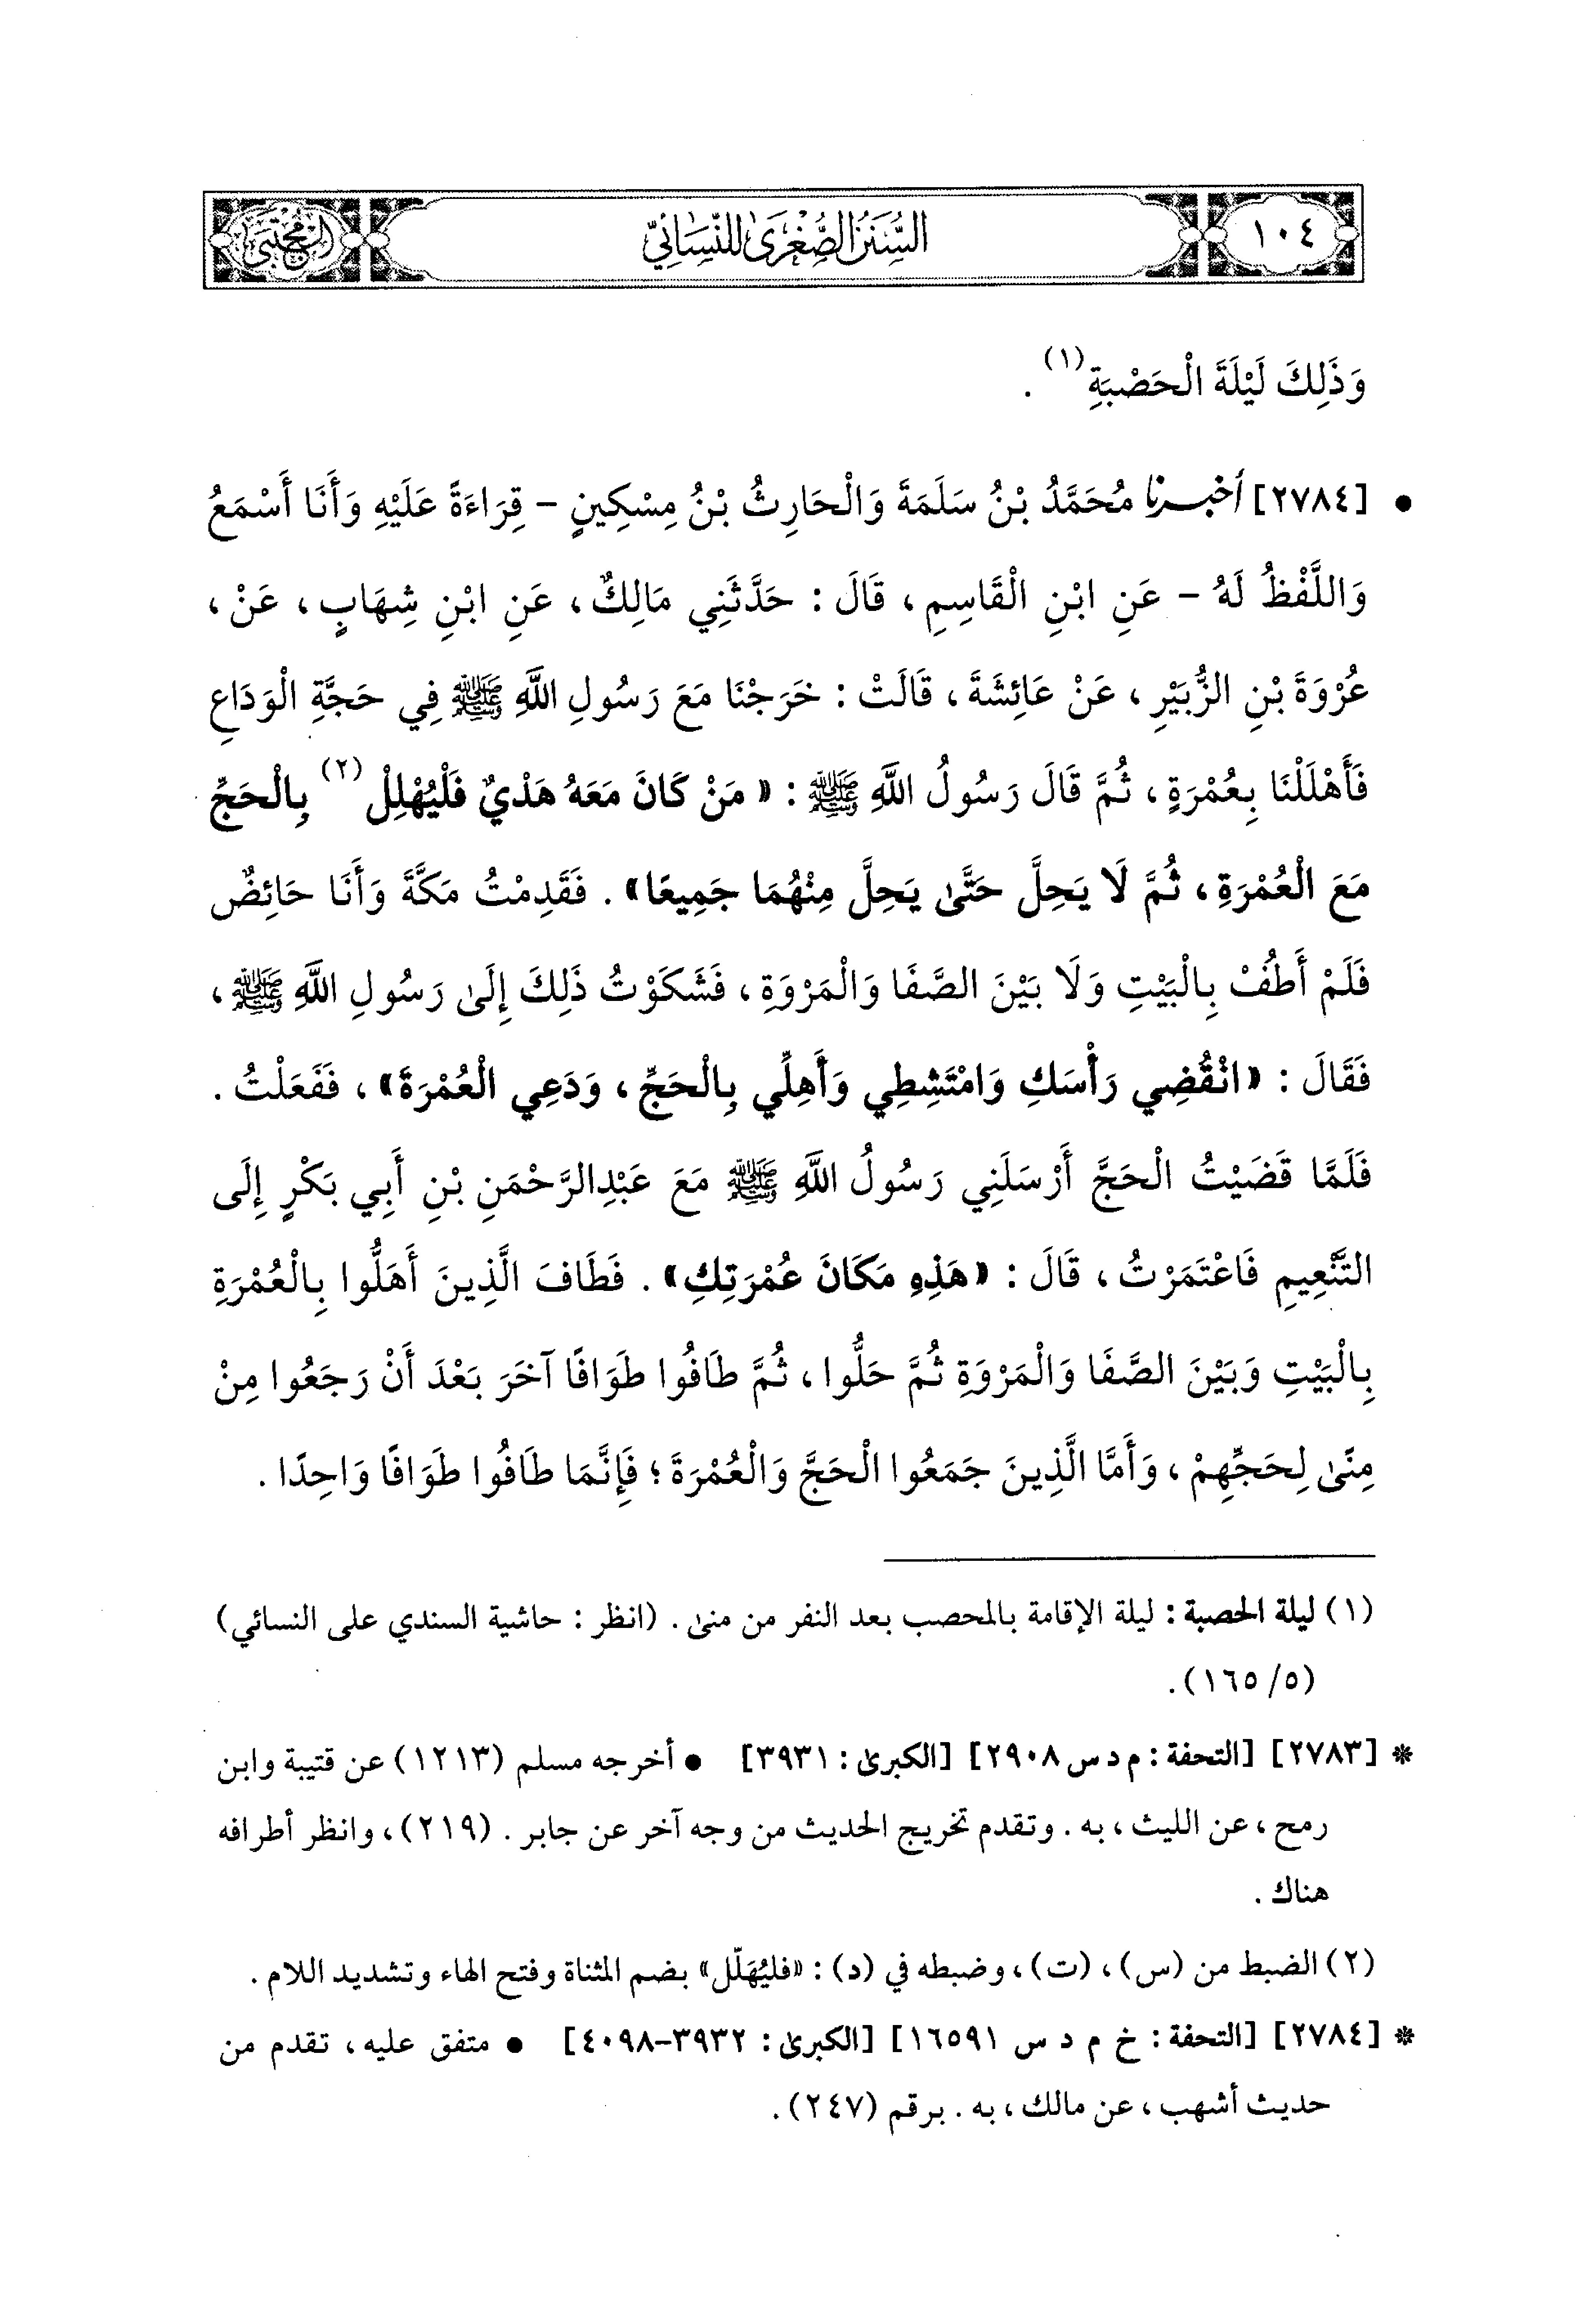 ١٠٤
السُّنَنُ الصُّغْرَىٰ لِلنَّسَائِيِّ
المجتبى
وَذَلِكَ لَيْلَةَ الْحَصْبَةِ (١) .
• [٢٧٨٤] أخبرنا مُحَمَّدُ بْنُ سَلَمَةَ وَالْحَارِثُ بْنُ مِسْكِينٍ - قِرَاءَةً عَلَيْهِ وَأَنَا أَسْمَعُ
وَاللَّفْظُ لَهُ - عَنِ ابْنِ الْقَاسِمِ ، قَالَ : حَدَّثَنِي مَالِكٌ ، عَنِ ابْنِ شِهَابٍ ، عَنْ ،
عُرْوَةَ بْنِ الزُّبَيْرِ ، عَنْ عَائِشَةَ ، قَالَتْ : خَرَجْنَا مَعَ رَسُولِ اللَّهِ ﷺ فِي حَجَّةِ الْوَدَاعِ
فَأَهْلَلْنَا بِعُمْرَةٍ ، ثُمَّ قَالَ رَسُولُ اللَّهِ ﷺ : « مَنْ كَانَ مَعَهُ هَدْيٌ فَلْيُهْلِلْ (٢) بِالْحَجِّ
مَعَ الْعُمْرَةِ ، ثُمَّ لَا يَحِلَّ حَتَّىٰ يَحِلَّ مِنْهُمَا جَمِيعًا» . فَقَدِمْتُ مَكَّةَ وَأَنَا حَائِضٌ
فَلَمْ أَطُفْ بِالْبَيْتِ وَلَا بَيْنَ الصَّفَا وَالْمَرْوَةِ ، فَشَكَوْتُ ذَلِكَ إِلَىٰ رَسُولِ اللَّهِ ﷺ ،
فَقَالَ : «انْقُضِي رَأْسَكِ وَامْتَشِطِي وَأَهِلِّي بِالْحَجِّ ، وَدَعِي الْعُمْرَةَ» ، فَفَعَلْتُ .
فَلَمَّا قَضَيْتُ الْحَجَّ أَرْسَلَنِي رَسُولُ اللَّهِ ﷺ مَعَ عَبْدِالرَّحْمَنِ بْنِ أَبِي بَكْرٍ إِلَى
التَّنْعِيمِ فَاعْتَمَرْتُ ، قَالَ : «هَذِهِ مَكَانَ عُمْرَتِكِ» . فَطَافَ الَّذِينَ أَهَلُّوا بِالْعُمْرَةِ
بِالْبَيْتِ وَبَيْنَ الصَّفَا وَالْمَرْوَةِ ثُمَّ حَلُّوا ، ثُمَّ طَافُوا طَوَافًا آخَرَ بَعْدَ أَنْ رَجَعُوا مِنْ
مِنًىٰ لِحَجِّهِمْ ، وَأَمَّا الَّذِينَ جَمَعُوا الْحَجَّ وَالْعُمْرَةَ ؛ فَإِنَّمَا طَافُوا طَوَافًا وَاحِدًا .
(١) ليلة الحصبة : ليلة الإقامة بالمحصب بعد النفر من منىٰ . (انظر : حاشية السندي على النسائي)
(٥/ ١٦٥) .
* [٢٧٨٣] [التحفة : م د س ٢٩٠٨] [الكبرىٰ : ٣٩٣١] • أخرجه مسلم (١٢١٣) عن قتيبة وابن
رمح ، عن الليث ، به . وتقدم تخريج الحديث من وجه آخر عن جابر . (٢١٩) ، وانظر أطرافه
هناك .
(٢) الضبط من (س) ، (ت) ، وضبطه في (د) : «فليُهَلّل» بضم المثناة وفتح الهاء وتشديد اللام .
* [٢٧٨٤] [التحفة : خ م د س ١٦٥٩١] [الكبرىٰ : ٣٩٣٢-٤٠٩٨] • متفق عليه ، تقدم من
حديث أشهب ، عن مالك ، به . برقم (٢٤٧) .